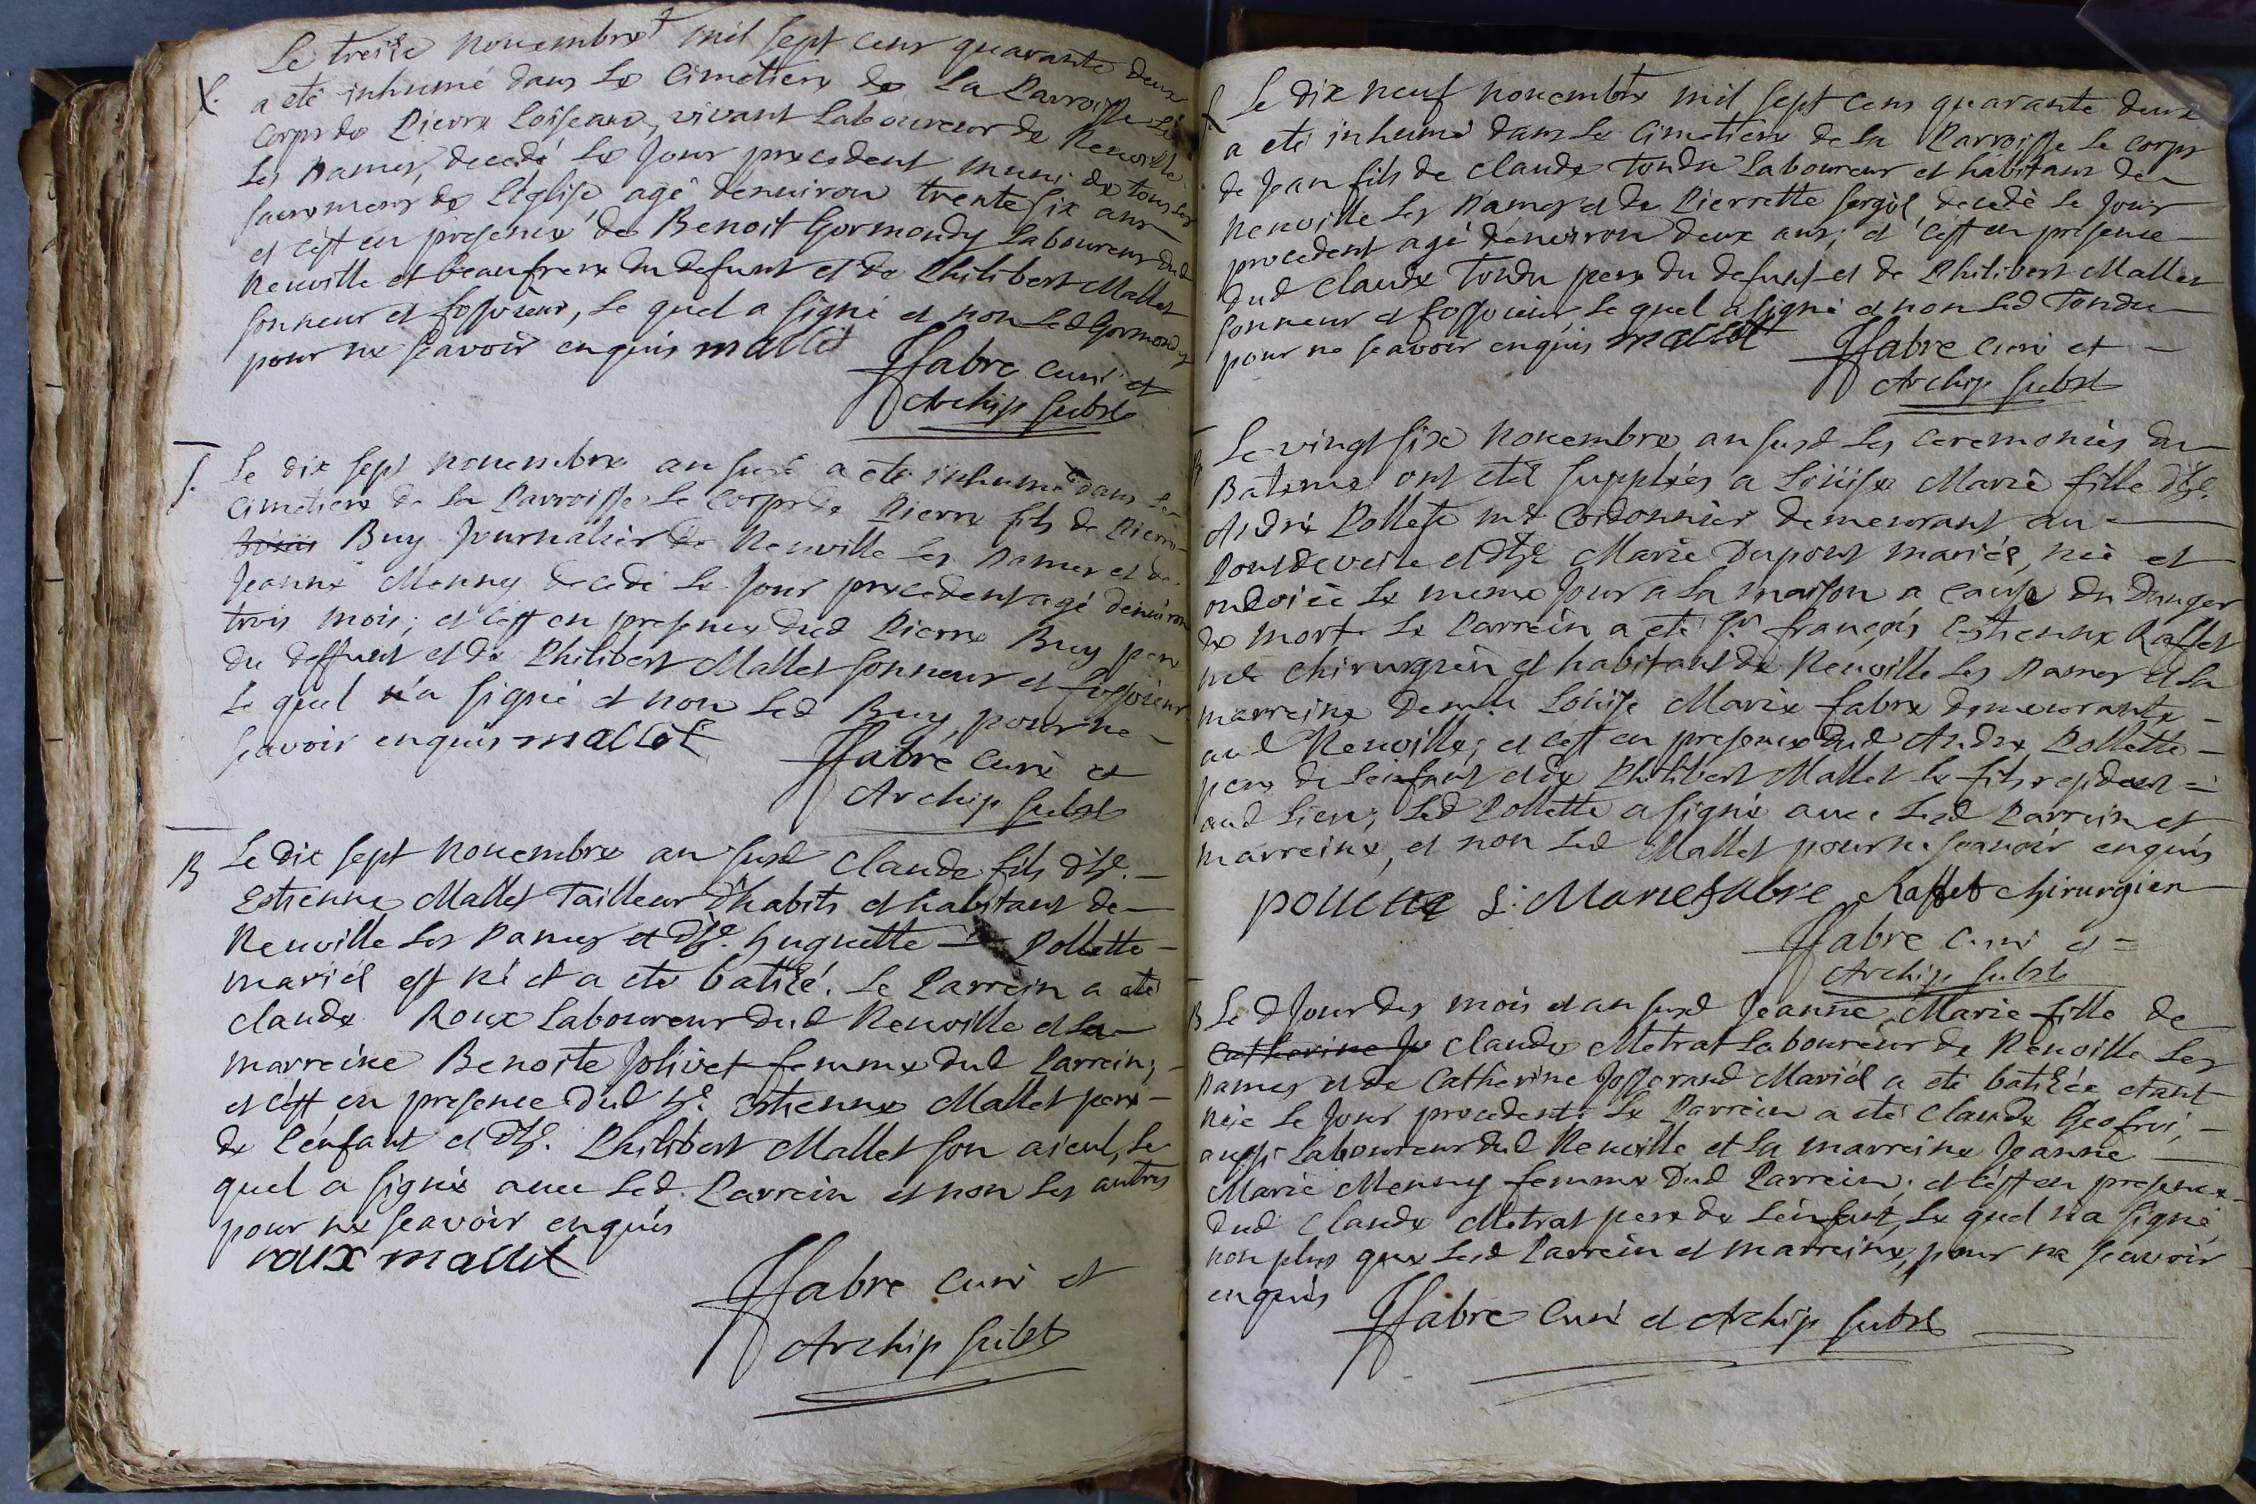 Le treize novembre mil sept cens quarante deux
a eté inhumé dans le cimetiere de la Parroisse le
corps de Pierre Loiseau, vivant Laboureur de Neuville
les Dames, decedé le jour precedent muni de tous les
sacremens de l'Eglise agé denviron trente six ans
et c'est en presence de Benoit Gormondy Laboureur dud
Neuville et beaufrere du defunt et de Philibert Mallet
sonneur et fossoieur, le quel a signé et non led Gormondy
pour ne scavoir enquis mallet
ffabre curé et
Archip subst
S.
Le dix sept novembre an susd a eté inhumé dans le
cimetiere de la Parroisse le corps de Pierre fils de Pierre
Buy Journalier de Neuville les Dames et de
Jeanne Menny decedé le jour precedent agé denviron
trois mois; et c'est en presence dud Pierre Buy pere
du deffunt et de Philibert Mallet sonneur et fossoieur
le quel a signé et non led Buy, pour ne
scavoir enquis mallet
ffabre curé et
Archip subst
B
Le dix sept novembre an susd Claude fils d'h.e
Estienne Mallet Tailleur d'habits et habitant de
Neuville les Dames et d'h.e huguette Pollette
mariés est né et a eté batizé. Le Parrein a eté
claude Roux Laboureur dud Neuville et la
marreine Benoite Jolivet femme dud Parrein;
et c'est en presence dud h.e Estienne Mallet pere
de l'enfant et d'h.e Philibert Mallet son aieul, le
quel a signé avec led. Parrein et non les autres
pour ne scavoir enquis
roux mallet
ffabre curé et
Archip subst
S.
Le dix neuf novembre mil sept cens quarante deux
a eté inhumé dans le cimetiere de la Parroisse le corps
de Jean fils de Claude Tondu Laboureur et habitant de
Neuville les Dames et de Pierrette decedé le jour
precedent agé denviron deux ans; et c'est en presence
dud Claude Tondu pere du defunt et de Philibert Mallet
sonneur et fossoieur, le quel a signé et non led Tondu
pour ne scavoir enquis mallet
ffabre curé et
Archip subst
B
Le vingt six novembre an susd les ceremonies du
Bateme ont eté supplées a Loüise Marie fille d'h.e
André Pollette m.e Cordonnier demeurant au
Pontdeveile et d'h.e Marie Dupont mariés, née et
ondoiée le meme jour a la maison a cause du danger
de mort. Le Parrein a eté S.r françois Estienne Raffet
m.e chirurgien et habitant de Neuville les Dames et la
marreine dem.lle Loüise Marie fabre demeurante
aud Neuville; et c'est en presence dud Andre Pollette
pere de l'enfant et de Philibert Mallet le fils resident
aud lieu; led Pollette a signé avec lesd Parrein et
marreine, et non led Mallet pour ne scavoir enquis
pollette L: Marie fabre Raffet chirurgien
ffabre curé et
Archip subst
B
Le d jour des mois et an susd Jeanne Marie fille de
Catherine Jo Claude Metrat Laboureur de Neuville les
Dames et de Catherine Josserand Mariés a eté batizée etant
née le jour precedent. Le Parrein a eté Claude Geofroi,
aussi Laboureur dud Neuville et la marreine Jeanne
Marie Menny femme dud Parrein; et c'est en presence
dud Claude Metrat pere de l'enfant, le quel n'a signé
non plus que lesd Parrein et marreine, pour ne scavoir
enquis
ffabre curé et Archip subst